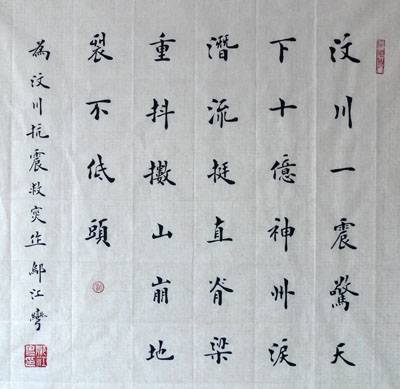 汶川一震驚天
下十億神州淚
潛流挺直脊梁
重抖擻山崩地
裂不低頭
為汶川抗震救灾作 江